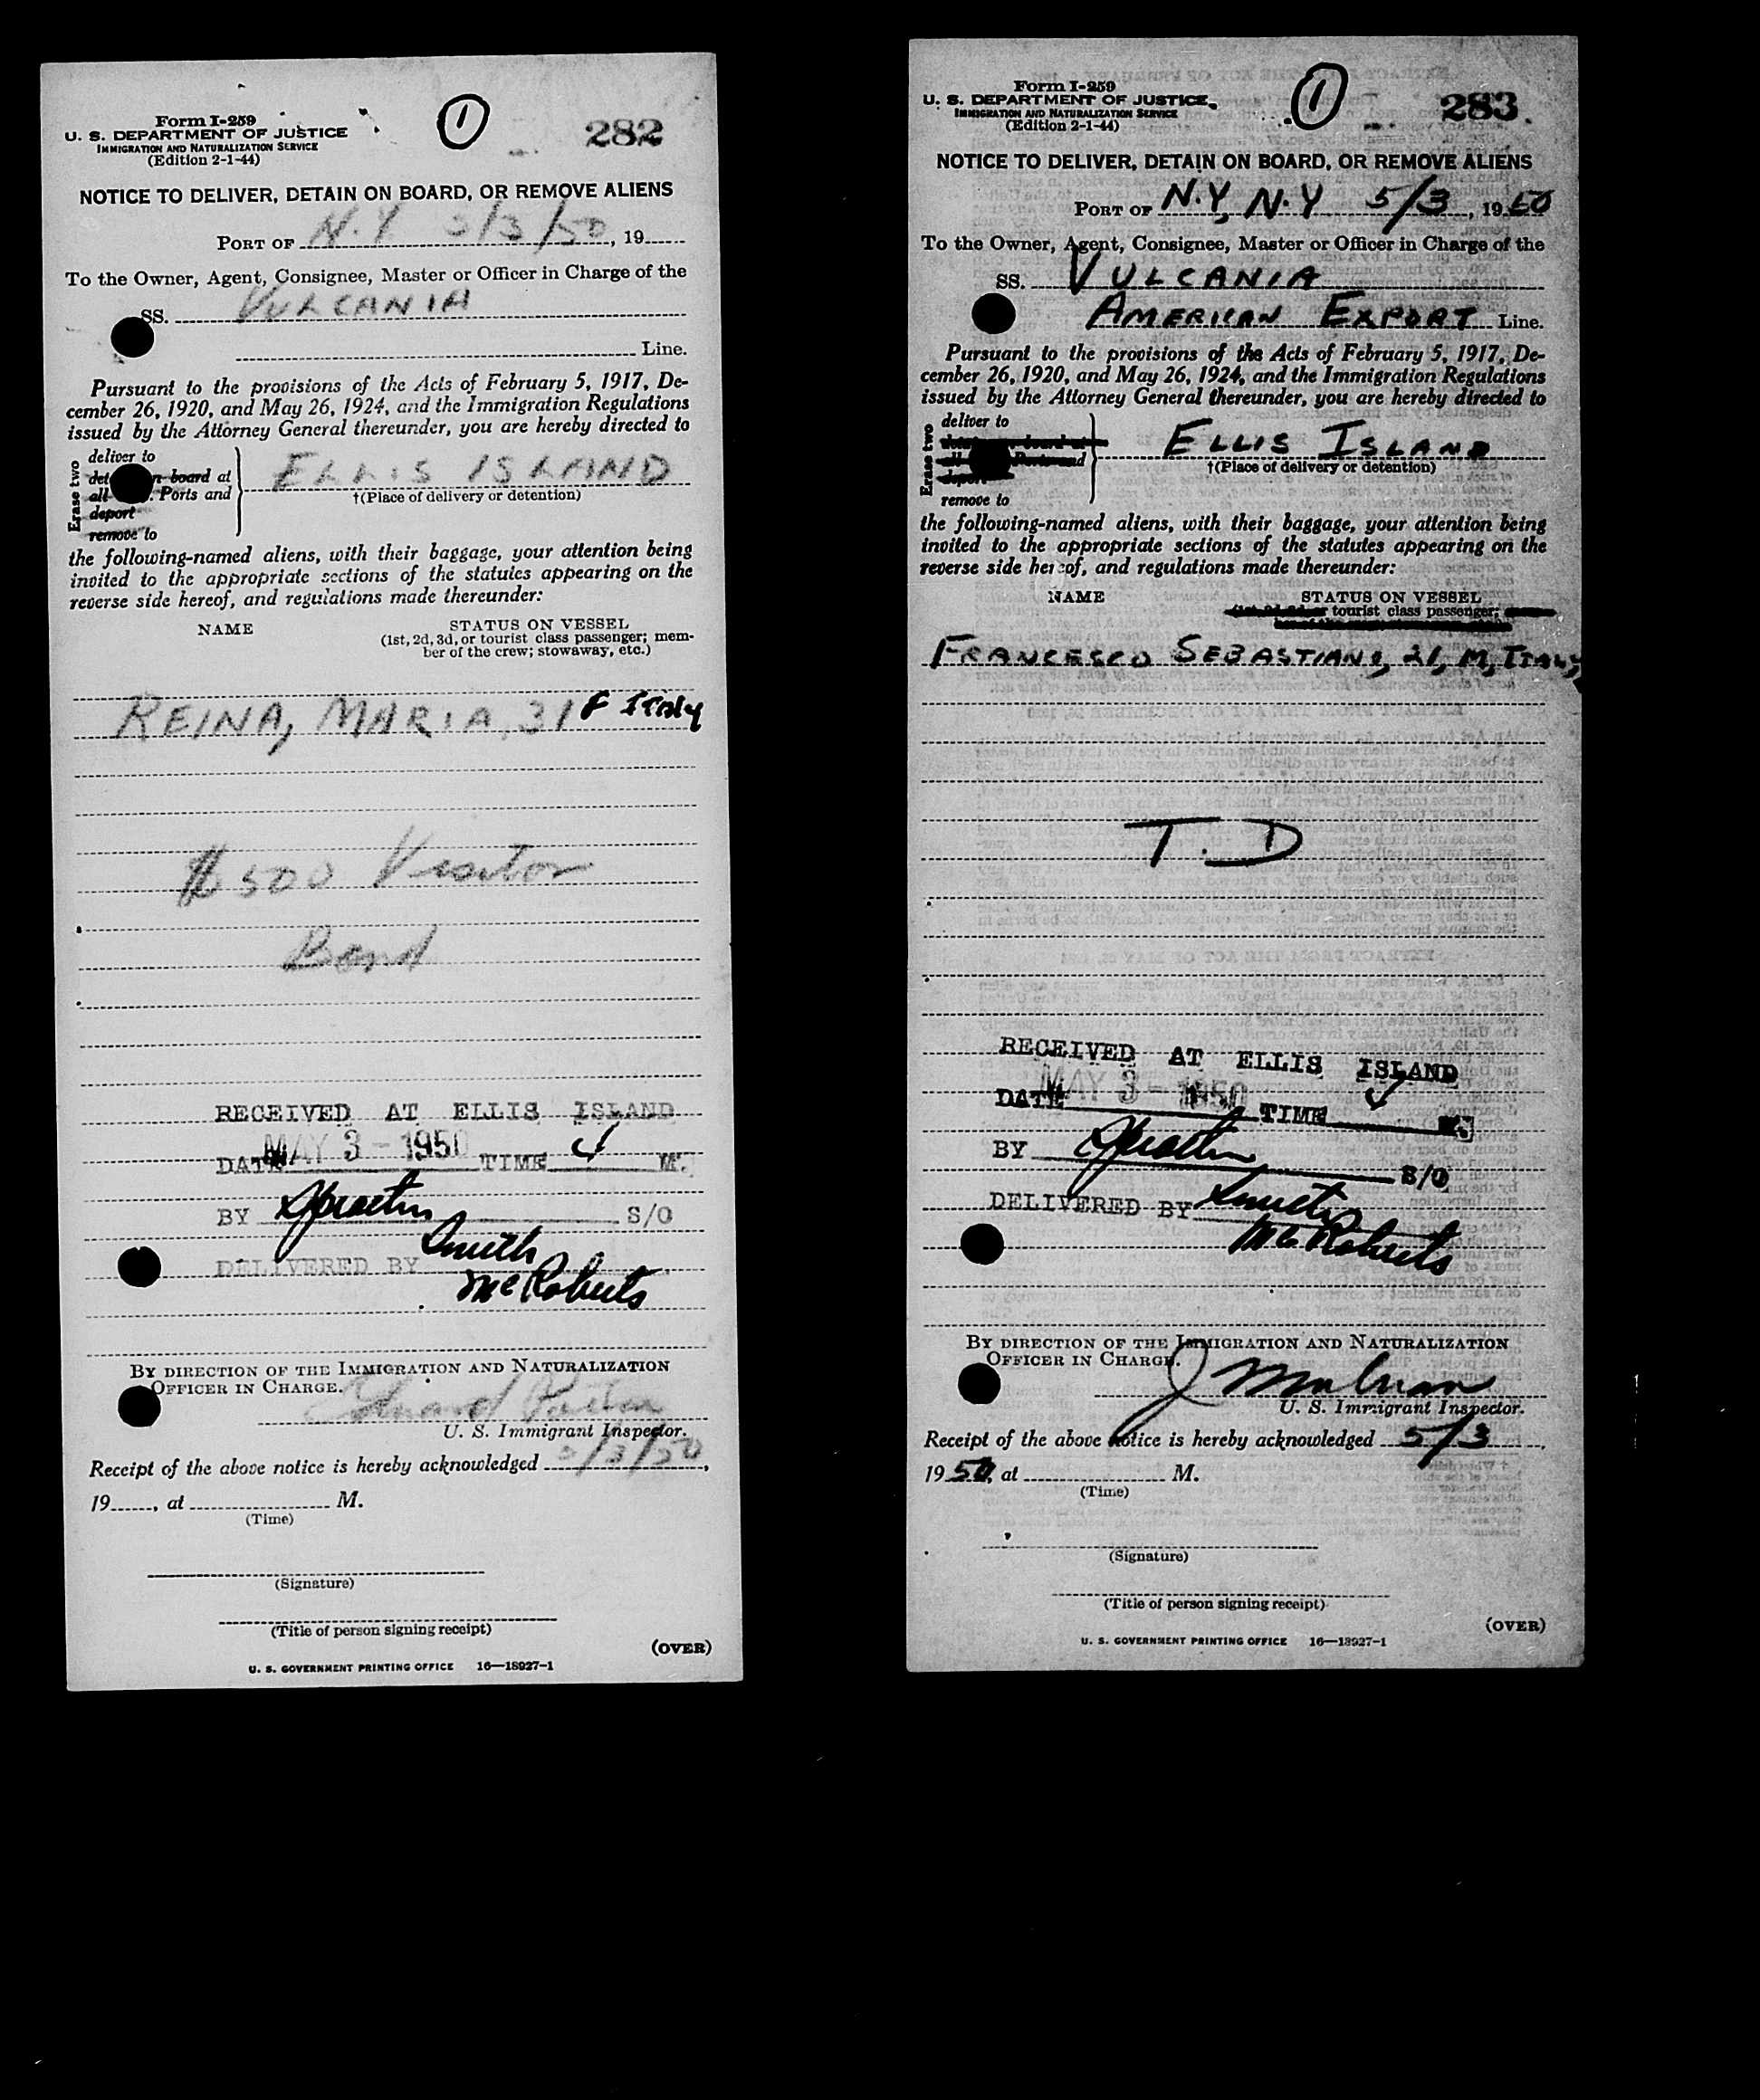 Form I-259
U. S. DEPARTMENT OF JUSTICE
IMMIGRATION AND NATURALIZATION SERVICE
(Edition 2-1-44)
1
282
NOTICE TO DELIVER, DETAIN ON BOARD, OR REMOVE ALIENS
PORT OF N.Y 5/3/50, 19
To the Owner, Agent, Consignee, Master or Officer in Charge of the
SS. VULCANIA
Line.
Pursuant to the provisions of the Acts of February 5, 1917, De-
cember 26, 1920, and May 26, 1924, and the Immigration Regulations
issued by the Attorney General thereunder, you are hereby directed to
Erase two
deliver to
board at
all Ports and
deport
remove to
ELLIS ISLAND
†(Place of delivery or detention)
the following-named aliens, with their baggage, your attention being
invited to the appropriate sections of the statutes appearing on the
reverse side hereof, and regulations made thereunder:
NAME
STATUS ON VESSEL
(1st, 2d, 3d, or tourist class passenger; mem-
ber of the crew; stowaway, etc.)
REINA, MARIA, 31 F ITALY
$500 Visitor
Bond
RECEIVED AT ELLIS ISLAND
DATE MAY 3 - 1950 TIME M.
BY S/O
DELIVERED BY Smith
McRoberts
BY DIRECTION OF THE IMMIGRATION AND NATURALIZATION
OFFICER IN CHARGE.
U. S. Immigrant Inspector.
Receipt of the above notice is hereby acknowledged 5/3/50,
19, at M.
(Time)
(Signature)
(Title of person signing receipt)
(OVER)
U. S. GOVERNMENT PRINTING OFFICE 16—18927-1
Form I-259
U. S. DEPARTMENT OF JUSTICE
IMMIGRATION AND NATURALIZATION SERVICE
(Edition 2-1-44)
1
283
NOTICE TO DELIVER, DETAIN ON BOARD, OR REMOVE ALIENS
PORT OF N.Y, N.Y 5/3, 1950
To the Owner, Agent, Consignee, Master or Officer in Charge of the
SS. VULCANIA
AMERICAN EXPORT Line.
Pursuant to the provisions of the Acts of February 5, 1917, De-
cember 26, 1920, and May 26, 1924, and the Immigration Regulations
issued by the Attorney General thereunder, you are hereby directed to
Erase two
deliver to
remove to
ELLIS ISLAND
†(Place of delivery or detention)
the following-named aliens, with their baggage, your attention being
invited to the appropriate sections of the statutes appearing on the
reverse side hereof, and regulations made thereunder:
NAME
STATUS ON VESSEL
tourist class passenger;
FRANCESCO SEBASTIANO, 21, M, ITALY,
T.D
RECEIVED AT ELLIS ISLAND
DATE MAY 3 - 1950 TIME M.
BY S/O
DELIVERED BY Smith
McRoberts
BY DIRECTION OF THE IMMIGRATION AND NATURALIZATION
OFFICER IN CHARGE.
U. S. Immigrant Inspector.
Receipt of the above notice is hereby acknowledged 5/3,
1950, at M.
(Time)
(Signature)
(Title of person signing receipt)
(OVER)
U. S. GOVERNMENT PRINTING OFFICE 16—18927-1